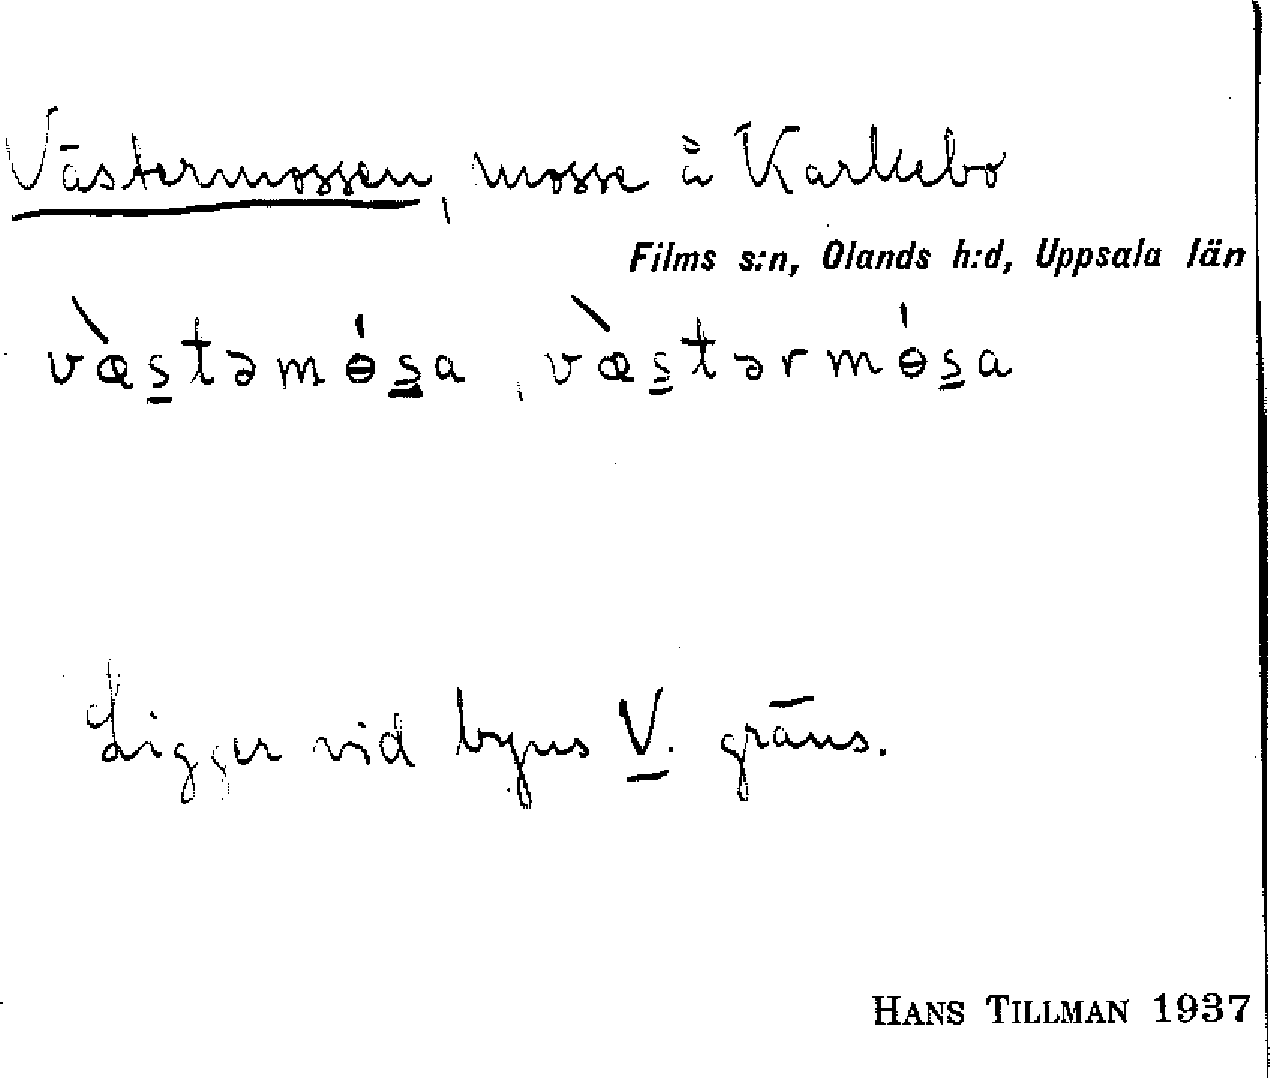 Västermossen, mosse å Karlebo
Films s:n, Olands h:d, Uppsala län
væ̀s̲təmɵ́s̲a, væ̀s̲tərmɵ́s̲a
Ligger vid byns V. gräns.
HANS TILLMAN 1937